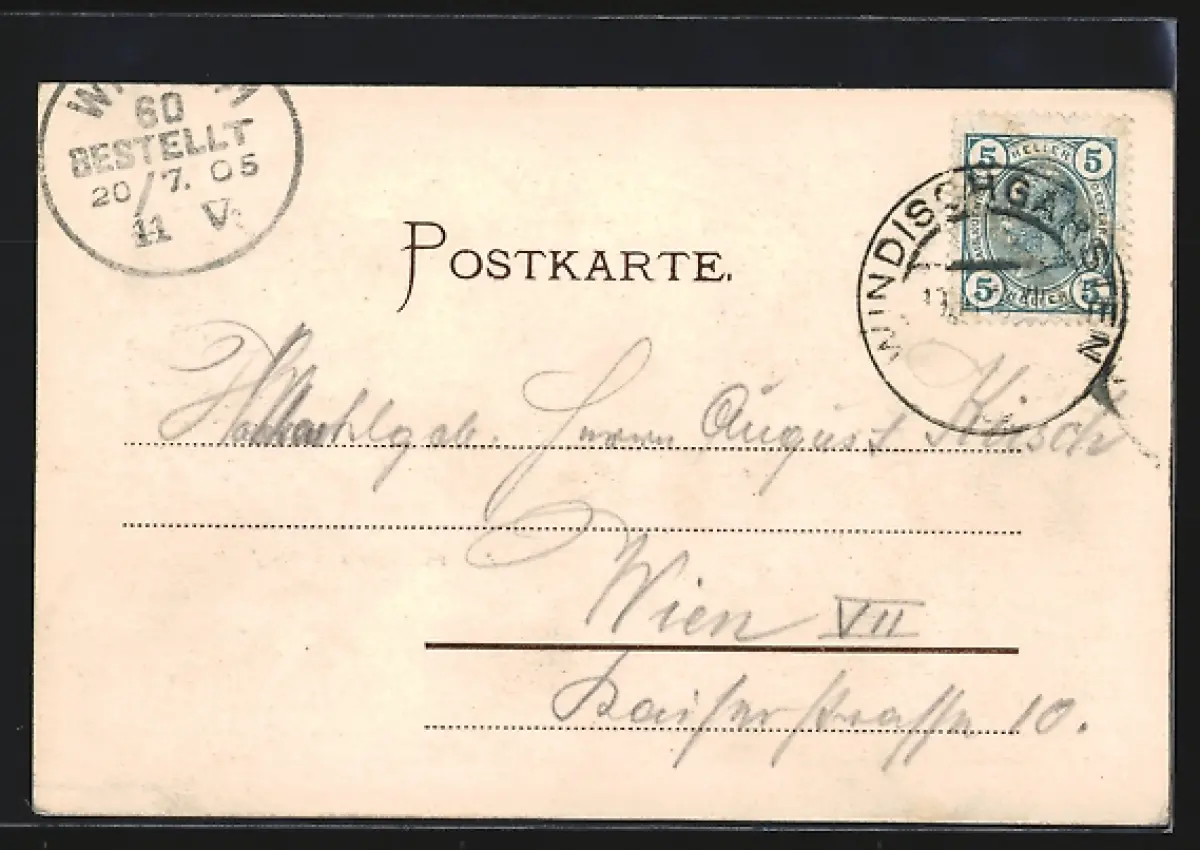 60
BESTELLT
20/7. 05
11 V.
5 HELLER 5
5 HELLER 5
WINDISCHGARSTEN
POSTKARTE.
Herrn August Kirsch
Wien VII
Kaiserstrasse 10.